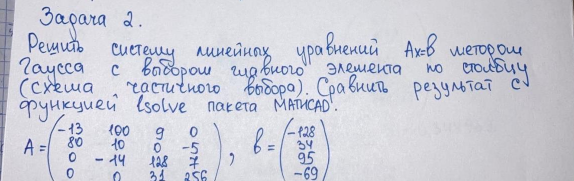 Задача 2.
Решить систему линейных уравнений Ax=b методом
Гаусса с выбором главного элемента по столбцу
(схема частичного выбора). Сравнить результат с
функцией lsolve пакета MATHCAD.
A = (-13 100 9 0
80 10 0 -5
0 -14 128 7
0 0 31 256), b = (-128
34
95
-69)